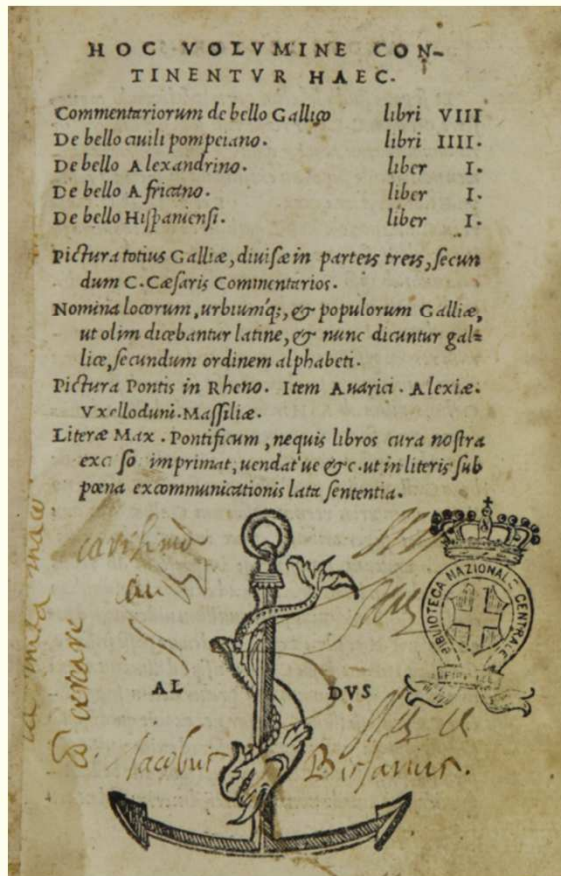 HOC VOLVMINE CON-
TINENTVR HAEC.
Commentariorum de bello Gallico libri VIII
De bello ciuili pompeiano. libri IIII.
De bello Alexandrino. liber I.
De bello Africano. liber I.
De bello Hispaniensi. liber I.
Pictura totius Galliæ, diuisæ in parteis treis, secun
dum C. Cæsaris Commentarios.
Nomina locorum, urbiumq;, & populorum Galliæ,
ut olim dicebantur latine, & nunc dicuntur gal-
lice, secundum ordinem alphabeti.
Pictura Pontis in Rheno. Item Auarici. Alexiæ.
Vxelloduni. Massiliæ.
Literæ Max. Pontificum, nequis libros cura nostra
exc so imprimat, uendat'ue &c. ut in literis sub
pœna excommunicationis lata sententia.
BIBLIOTECA NAZIONALE CENTRALE
AL DVS
Iacobus